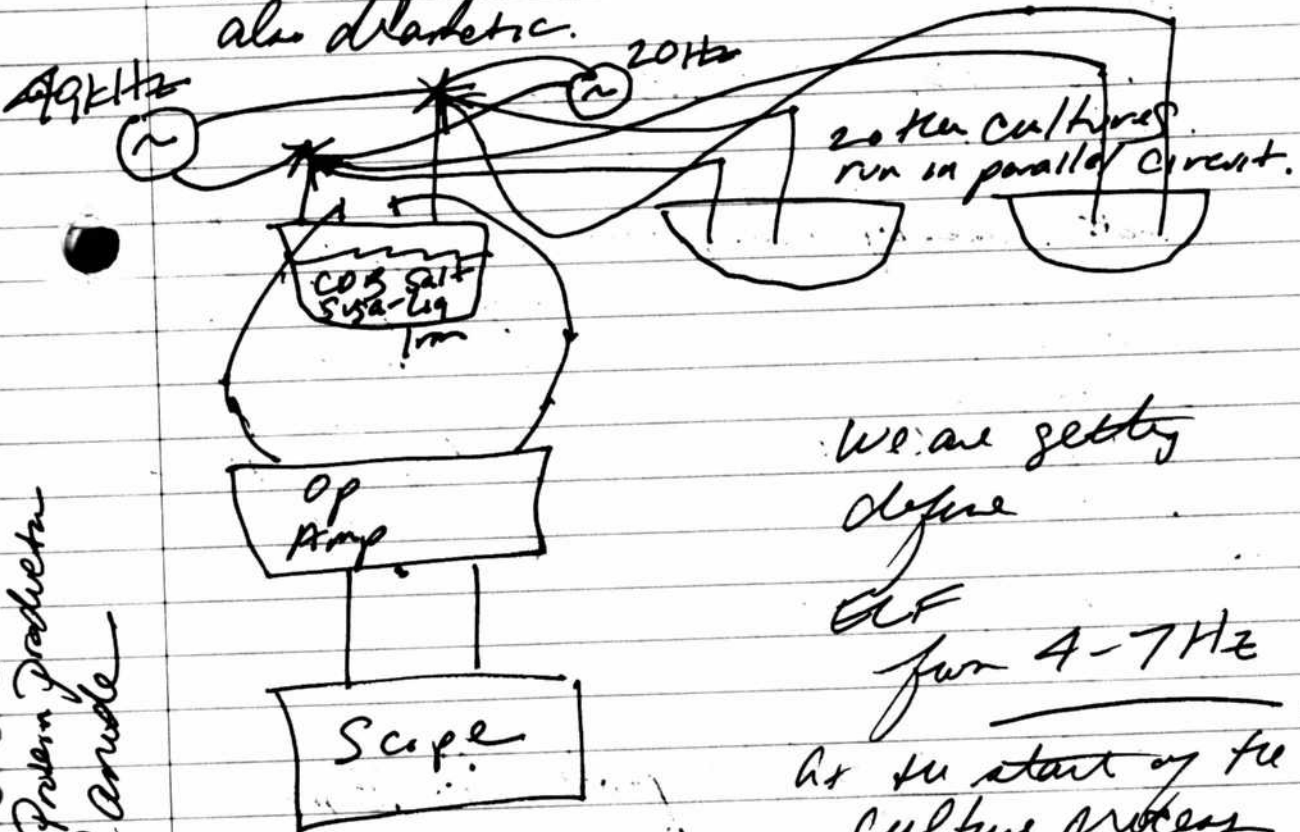 also diametic.
49kHz
20Hz
2 other cultures
run in parallel circuit.
CDB Salt
Suga-Liq
Iron
We are getting
define
ELF
from 4-7Hz
Op
Amp
Scope
at the start of the
culture process
Protein production